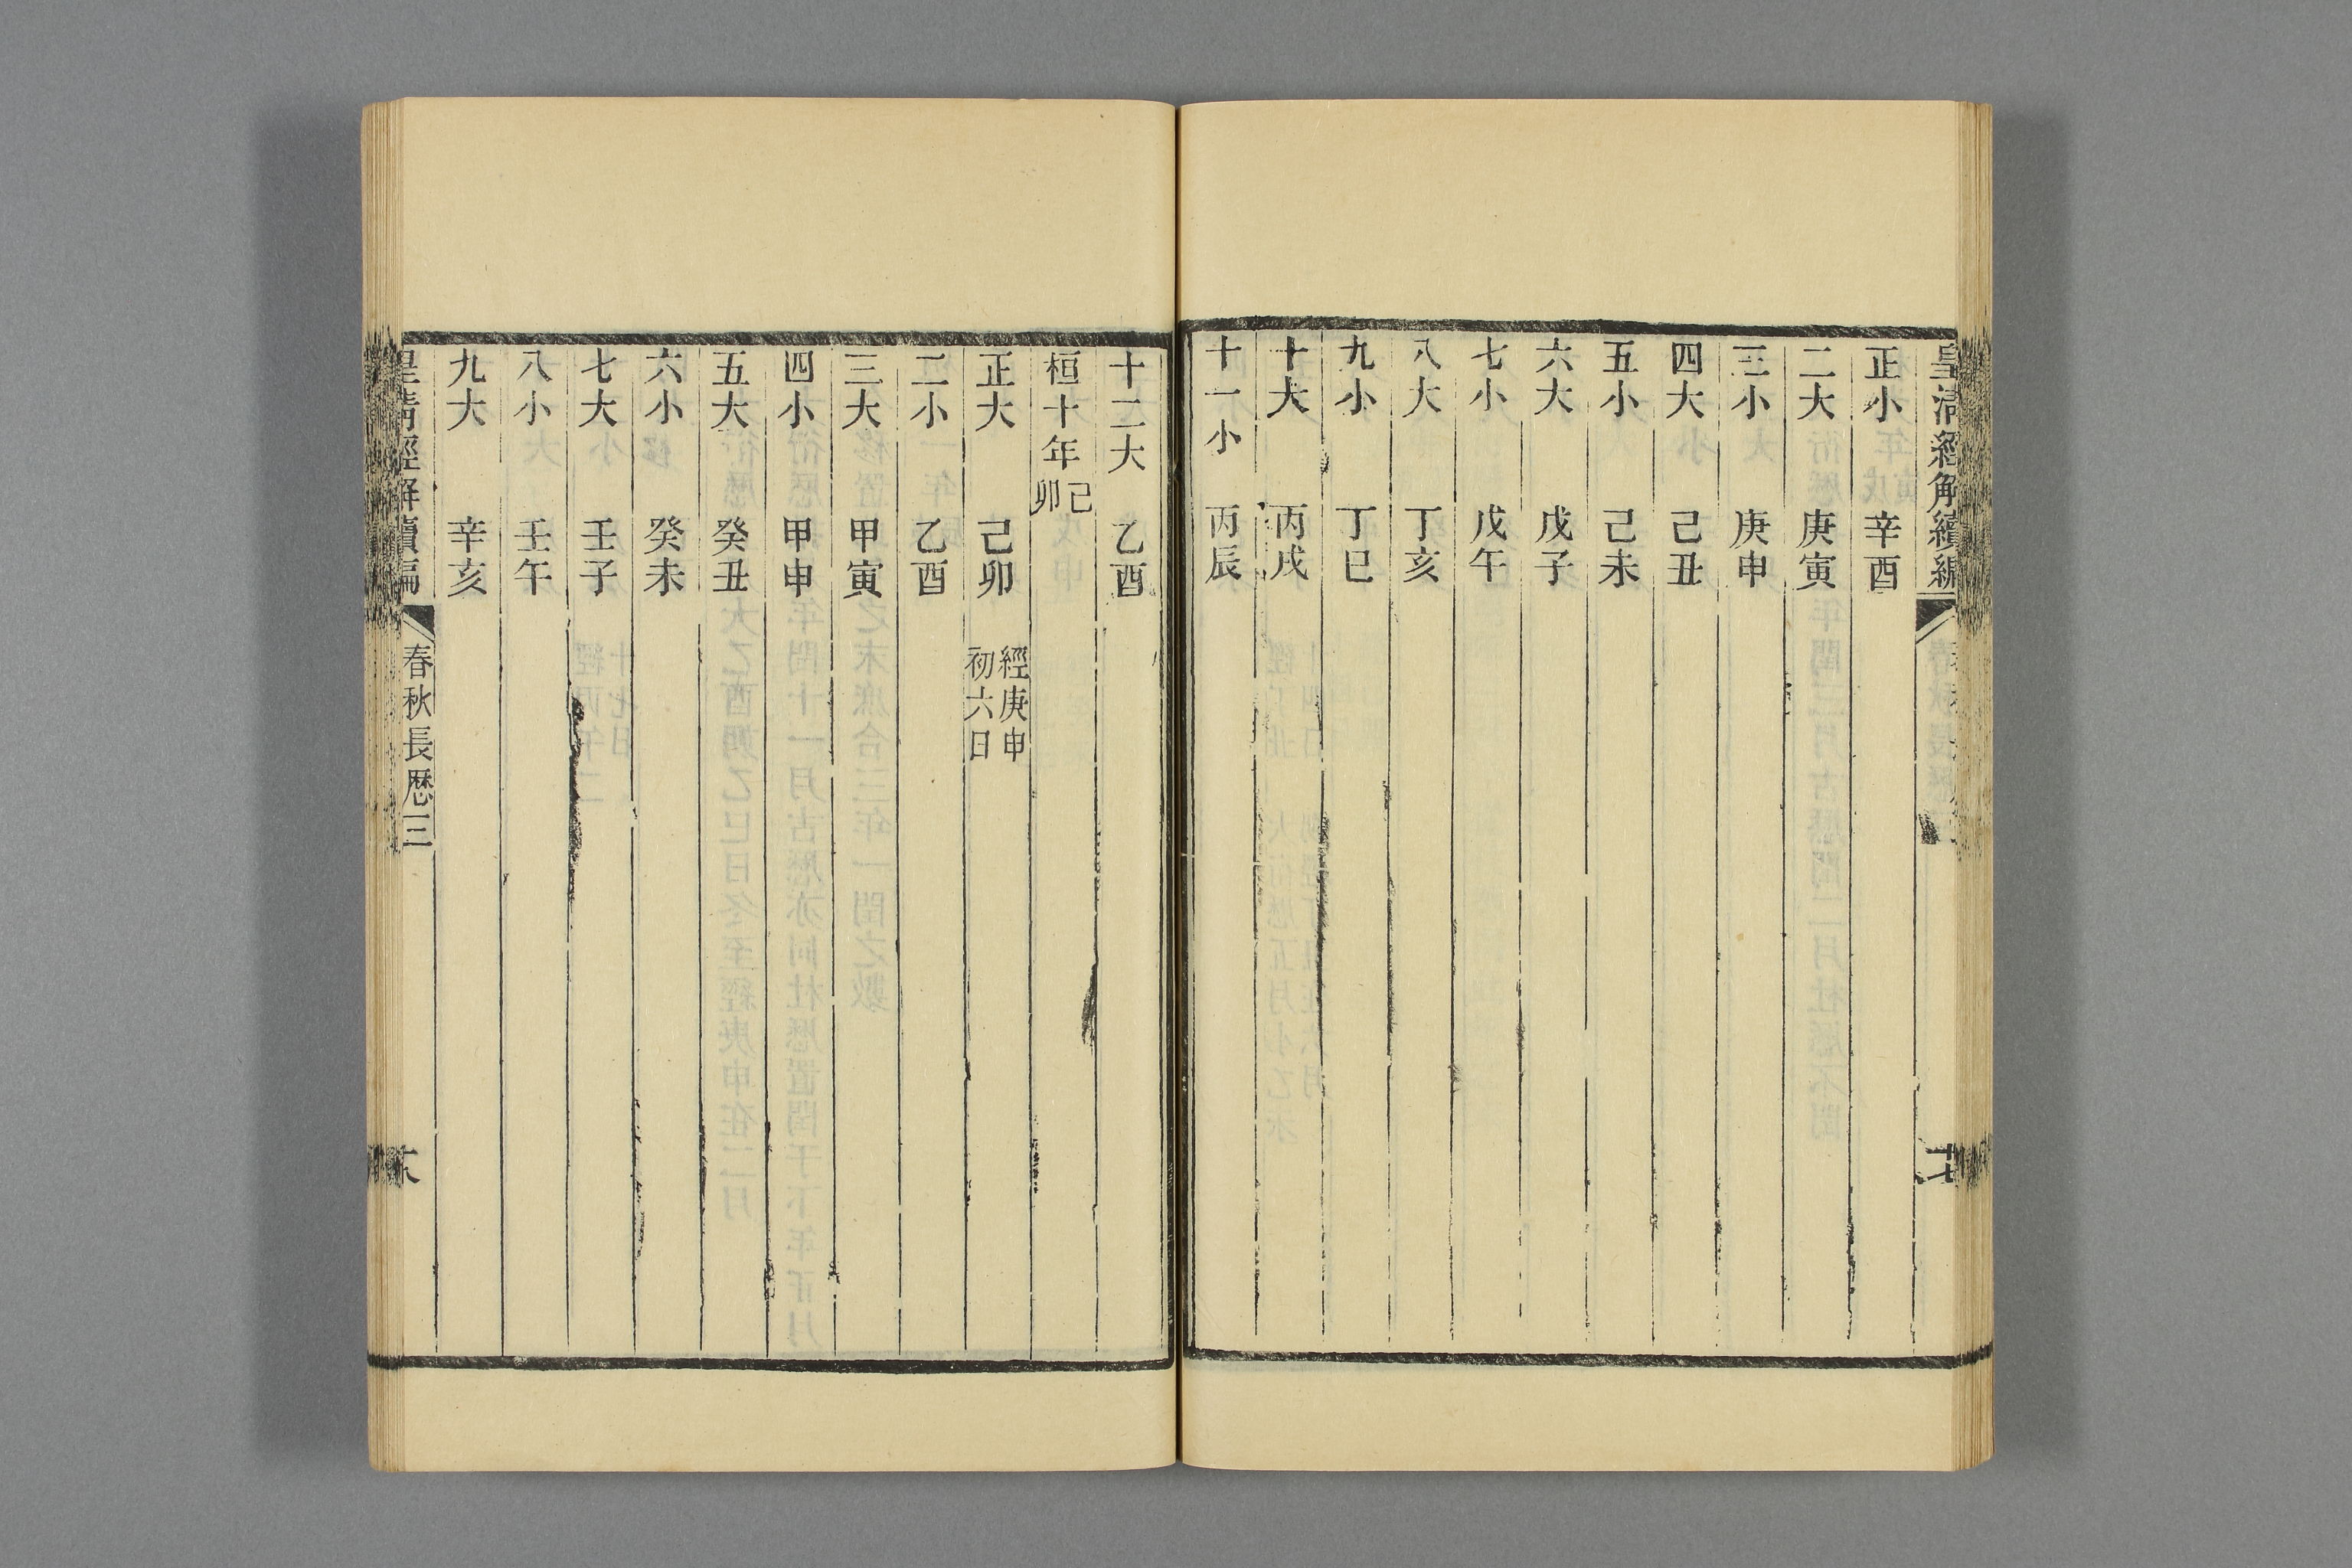 皇清經解續編
十七
正小 辛酉
二大 庚寅
三小 庚申
四大 己丑
五小 己未
六大 戊子
七小 戊午
八大 丁亥
九小 丁巳
十大 丙戌
十一小 丙辰
十二大 乙酉
桓十年己卯
正大 己卯 經庚申初六日
二小 乙酉
三大 甲寅
四小 甲申
五大 癸丑
六小 癸未
七大 壬子
八小 壬午
九大 辛亥
皇清經解續編 春秋長厯三